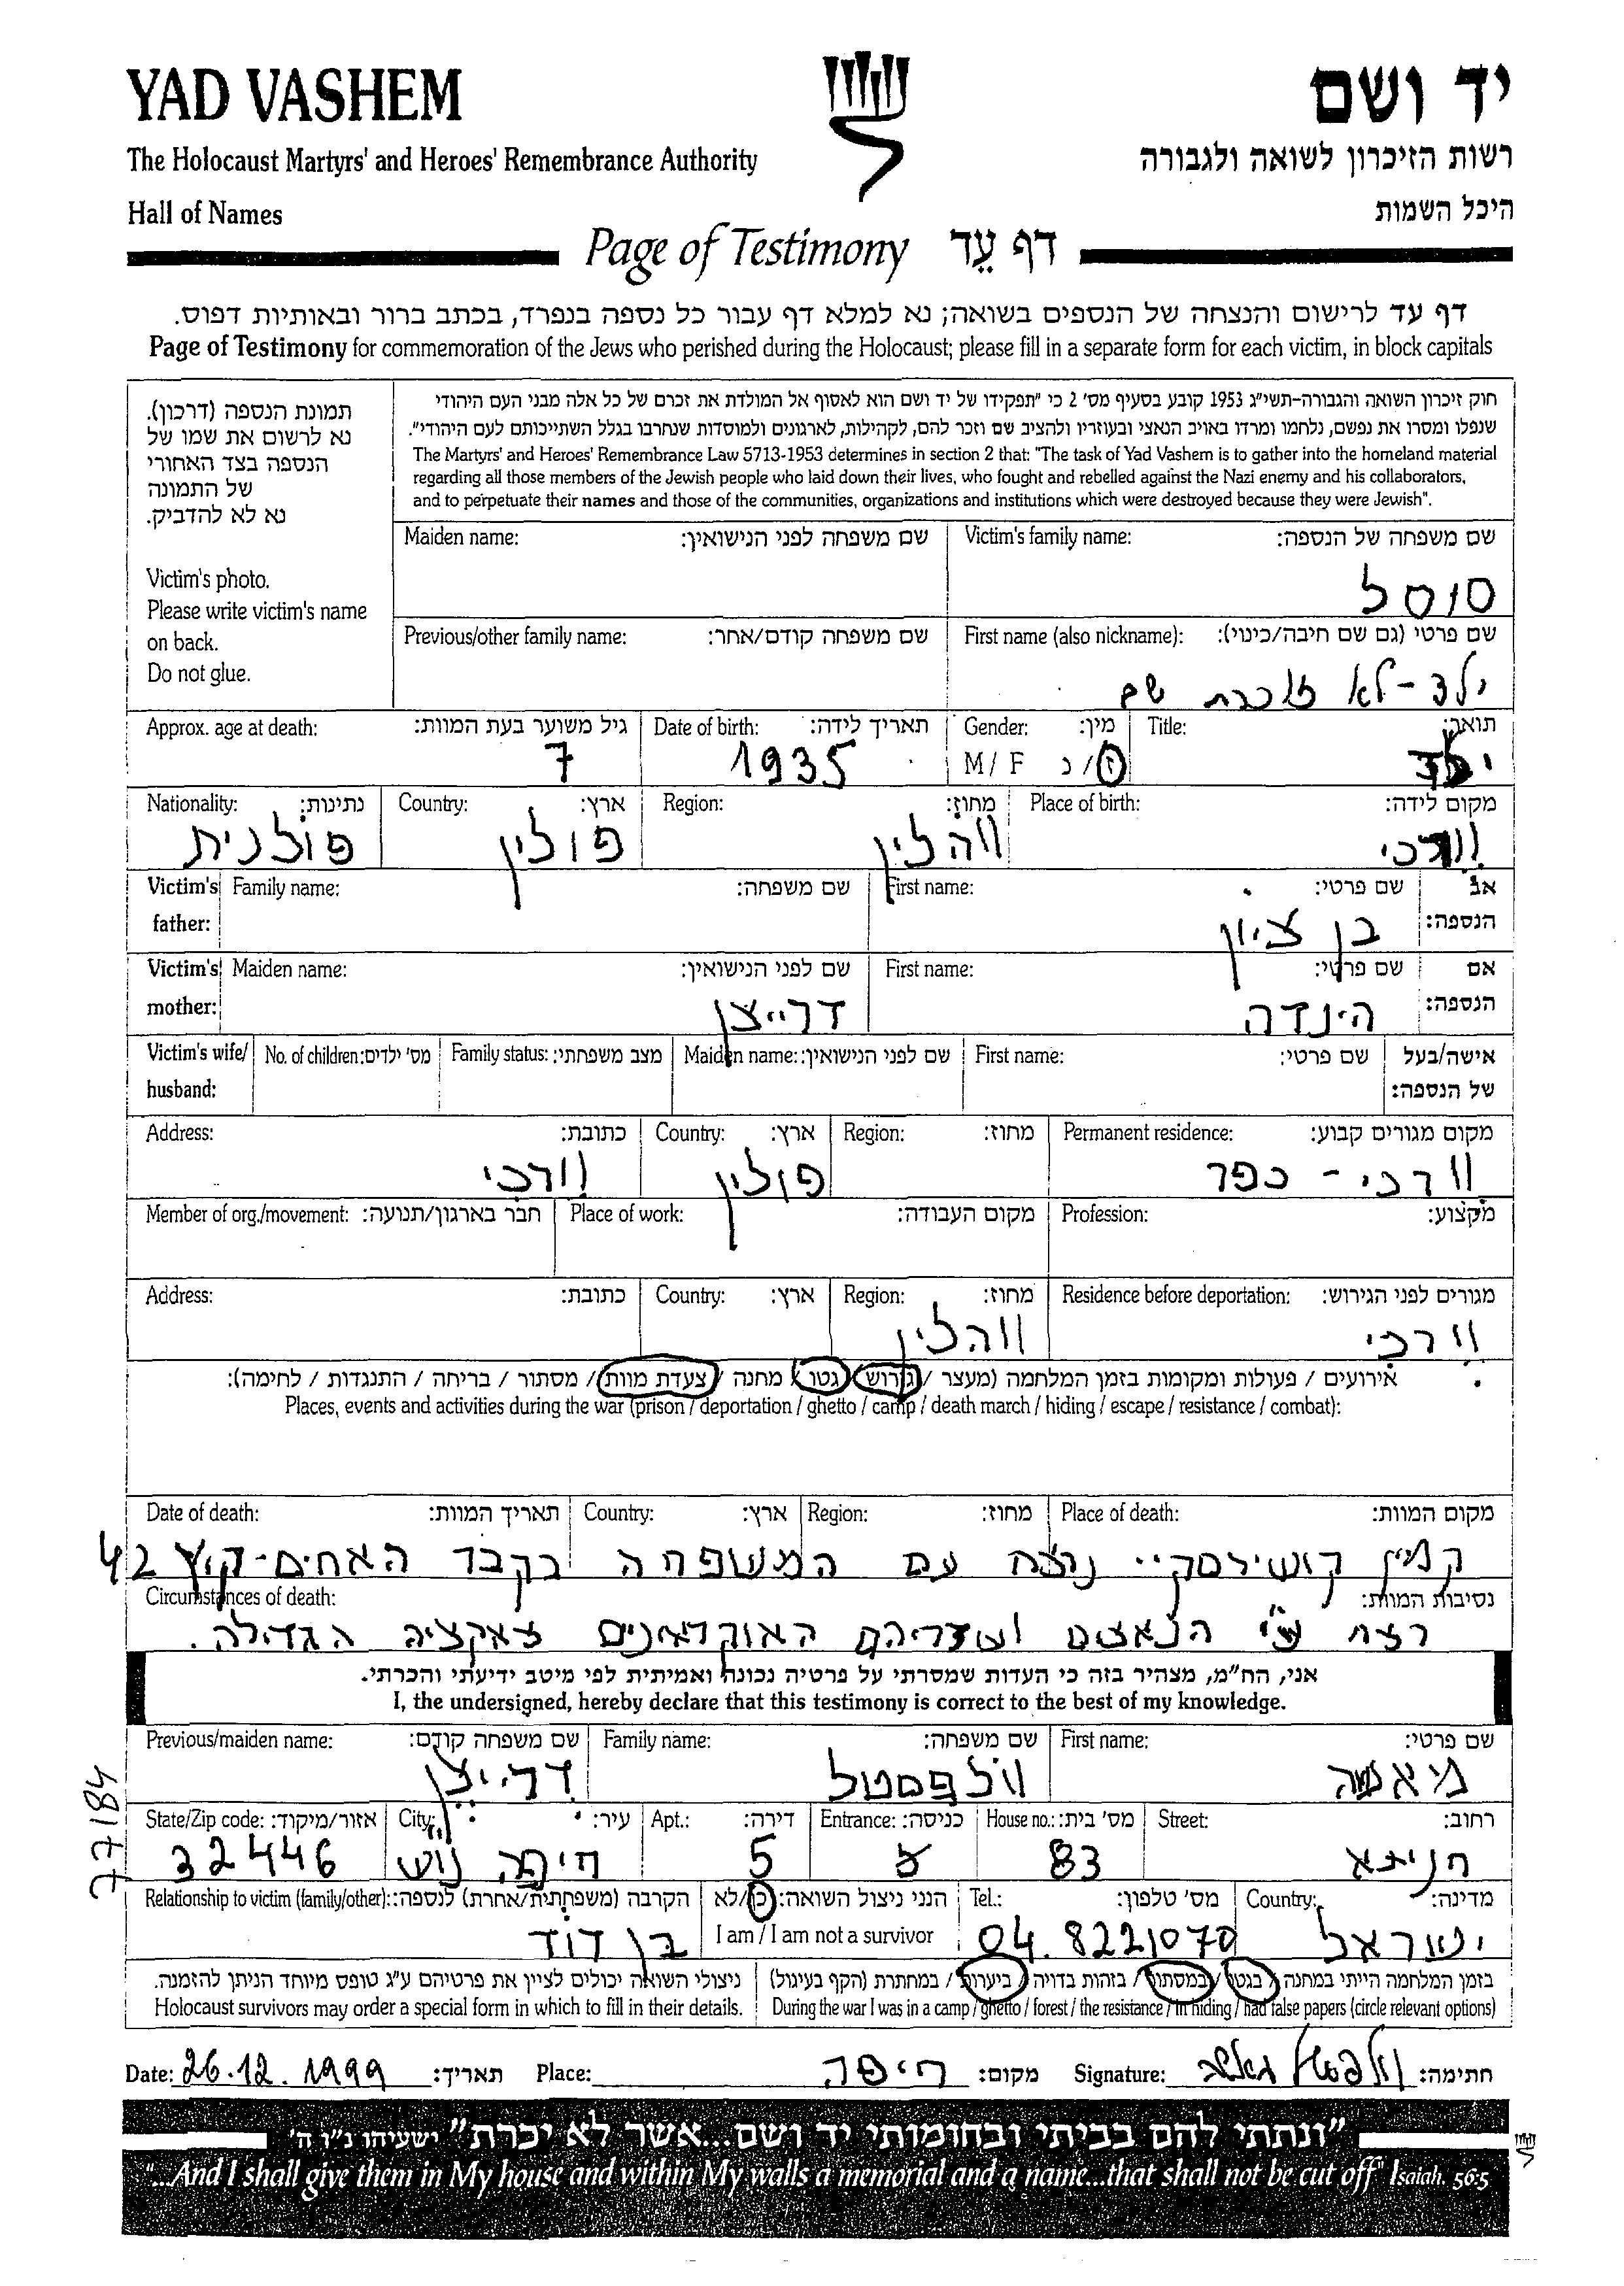 YAD VASHEM יד ושם
The Holocaust Martyrs' and Heroes' Remembrance Authority רשות הזיכרון לשואה ולגבורה
Hall of Names היכל השמות
Page of Testimony דף עֵד
דף עד לרישום והנצחה של הנספים בשואה; נא למלא דף עבור כל נספה בנפרד, בכתב ברור ובאותיות דפוס.
Page of Testimony for commemoration of the Jews who perished during the Holocaust; please fill in a separate form for each victim, in block capitals
תמונת הנספה (דרכון).
נא לרשום את שמו של
הנספה בצד האחורי
של התמונה
נא לא להדביק.
Victim's photo.
Please write victim's name
on back.
Do not glue.
חוק זיכרון השואה והגבורה-תשי"ג 1953 קובע בסעיף מס' 2 כי "תפקידו של יד ושם הוא לאסוף אל המולדת את זכרם של כל אלה מבני העם היהודי
שנפלו ומסרו את נפשם, נלחמו ומרדו באויב הנאצי ובעוזריו ולהציב שם וזכר להם, לקהילות, לארגונים ולמוסדות שנחרבו בגלל השתייכותם לעם היהודי".
The Martyrs' and Heroes' Remembrance Law 5713-1953 determines in section 2 that: "The task of Yad Vashem is to gather into the homeland material
regarding all those members of the Jewish people who laid down their lives, who fought and rebelled against the Nazi enemy and his collaborators,
and to perpetuate their names and those of the communities, organizations and institutions which were destroyed because they were Jewish".
Victim's family name: שם משפחה של הנספה: Maiden name: שם משפחה לפני הנישואין:
סוסל
First name (also nickname): שם פרטי (גם שם חיבה/כינוי): Previous/other family name: שם משפחה קודם/אחר:
ילד - לא זוכרת שם
Title: תואר: Gender: מין: Date of birth: תאריך לידה: Approx. age at death: גיל משוער בעת המוות:
ילד M / F ז / נ 1935 7
Place of birth: מקום לידה: Region: מחוז: Country: ארץ: Nationality: נתינות:
וורכי ווהלין פולין פולנית
Victim's father: אב הנספה: First name: שם פרטי: Family name: שם משפחה:
בן ציון
Victim's mother: אם הנספה: First name: שם פרטי: Maiden name: שם לפני הנישואין:
הינדה דרייצן
Victim's wife/ husband: אישה/בעל של הנספה: First name: שם פרטי: Maiden name: שם לפני הנישואין: Family status: מצב משפחתי: No. of children: מס' ילדים:
Permanent residence: מקום מגורים קבוע: Region: מחוז: Country: ארץ: Address: כתובת:
וורכי - כפר פולין וורכי
Profession: מקצוע: Place of work: מקום העבודה: Member of org./movement: חבר בארגון/תנועה:
Residence before deportation: מגורים לפני הגירוש: Region: מחוז: Country: ארץ: Address: כתובת:
וורכי ווהלין
אירועים / פעולות ומקומות בזמן המלחמה (מעצר / גירוש / גטו / מחנה / צעדת מוות / מסתור / בריחה / התנגדות / לחימה):
Places, events and activities during the war (prison / deportation / ghetto / camp / death march / hiding / escape / resistance / combat):
Place of death: מקום המוות: Region: מחוז: Country: ארץ: Date of death: תאריך המוות:
קמין קושירסקי נרצח עם המשפחה בקבר האחים - קיץ 42
Circumstances of death: נסיבות המוות:
רצח ע"י הנאצים ועוזריהם האוקראינים באקציה הגדולה.
אני, הח"מ, מצהיר בזה כי העדות שמסרתי על פרטיה נכונה ואמיתית לפי מיטב ידיעתי והכרתי.
I, the undersigned, hereby declare that this testimony is correct to the best of my knowledge.
First name: שם פרטי: Family name: שם משפחה: Previous/maiden name: שם משפחה קודם:
מאשה וולפסטל דרייצן
Street: רחוב: House no.: מס' בית: Entrance: כניסה: Apt.: דירה: City: עיר: State/Zip code: אזור/מיקוד:
חניתא 83 5 חיפה נוש 32446
77184
Country: מדינה: Tel.: מס' טלפון: הנני ניצול השואה: כן/לא Relationship to victim (family/other): הקרבה (משפחתית/אחרת) לנספה:
ישראל 04. 8221070 I am / I am not a survivor בן דוד
בזמן המלחמה הייתי במחנה / בגטו / במסתור / בזהות בדויה / ביערות / במחתרת (הקף בעיגול)
During the war I was in a camp / ghetto / forest / the resistance / in hiding / had false papers (circle relevant options)
ניצולי השואה יכולים לציין את פרטיהם ע"ג טופס מיוחד הניתן להזמנה.
Holocaust survivors may order a special form in which to fill in their details.
Date: 26.12.1999 תאריך: Place: חיפה מקום: Signature: וולפסטל מאשה חתימה:
"ונתתי להם בביתי ובחומותי יד ושם...אשר לא יכרת" ישעיהו נ"ו ה'
"...And I shall give them in My house and within My walls a memorial and a name...that shall not be cut off" Isaiah, 56:5